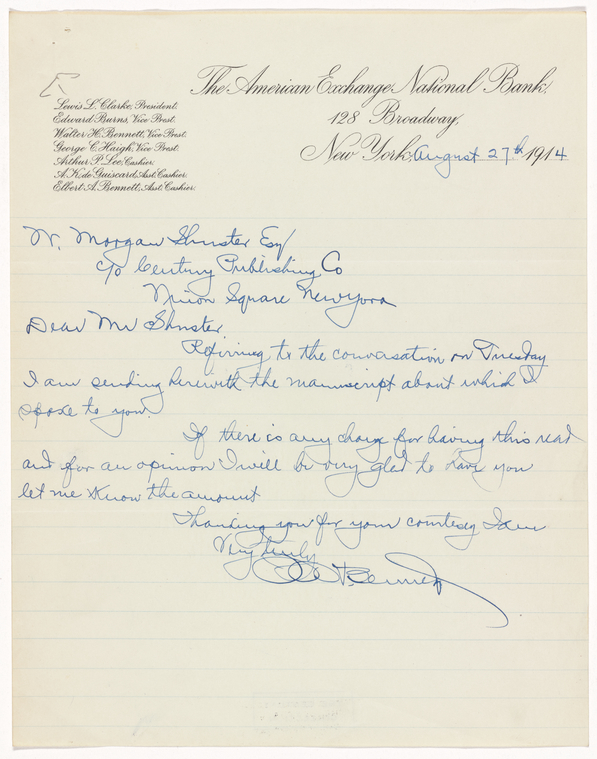 The American Exchange National Bank,
128 Broadway,
New York, August 27th 1914
Lewis L. Clarke, President.
Edward Burns, Vice Prest.
Walter H. Bennett, Vice Prest.
George C. Haigh, Vice Prest.
Arthur P. Lee, Cashier.
A. K. de Guiscard, Asst. Cashier.
Elbert A. Bennett, Asst. Cashier.
W. Morgan Shuster Esq
c/o Century Publishing Co
Union Square New York
Dear Mr Shuster
Refiring to the conversation on Tuesday
I am sending herewith the manuscript about which I
spoke to you.
If there is any charge for having this read
and for an opinion I will be very glad to have you
let me know the amount
Thanking you for your courtesy I am
Very truly
Bennett